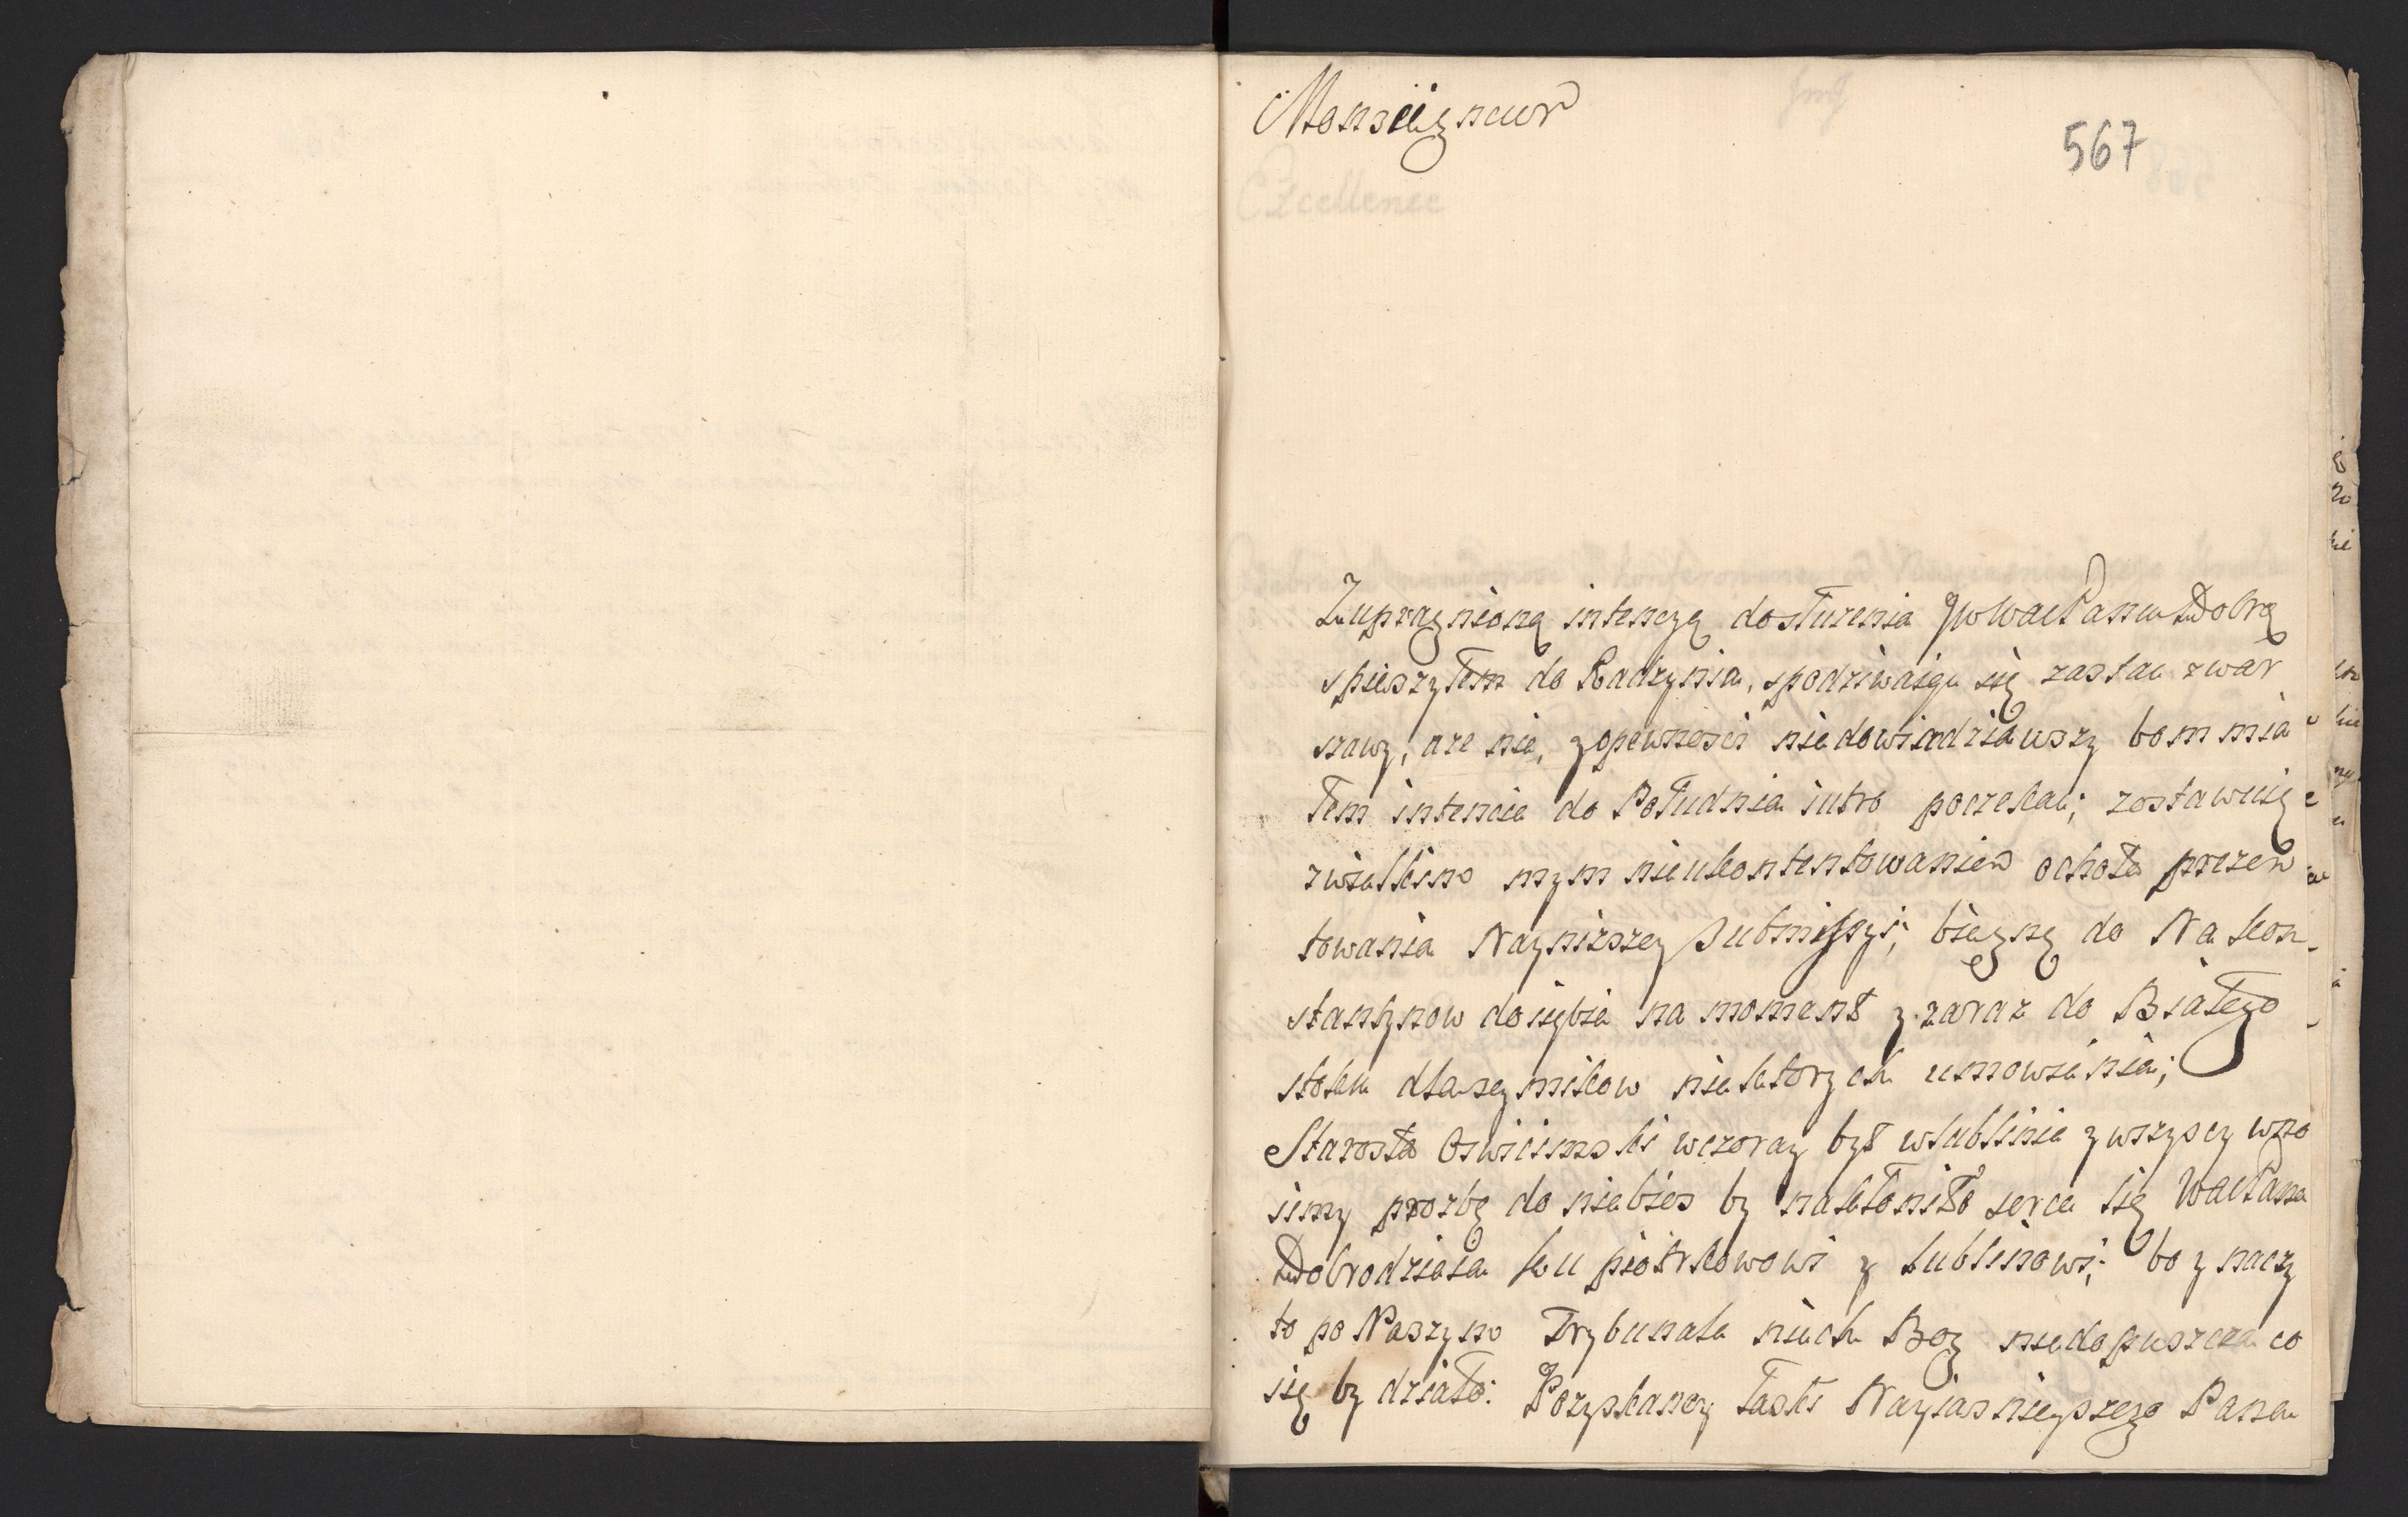 Monseigneur
567
Zupragnioną intencyą dosłużenia JWWaćPanu Dobrę
spieszyłem do Radzynia, spodziwaiąc się zastać zwar
szawy, aże nie, zopewnosci niedowiadziawszy bom mia
łem intencie do Południa iutro poczekać; zostawuię
zwielkim mym nieukontentowaniem ochota prezen
towania Nayniższey submissyi; bieżnę do Na kon
stantynow dosiebie na moment y zaraz do Białego
stoku dla seymikow niektorych umowienia;
Starosta Oswicimski wczoray był wLublinie y wszyscy wno
simy prozbę do niebios by nakłoniło serce się WaćPana
Dobrodzieia ku piotrkowowi y Lublinowi; bo ynaczy
to po Naszym Trybunale niech Bog niedopuszcza co
się by działo: Pozyskaney łaski Nayiasnieyszego Pana